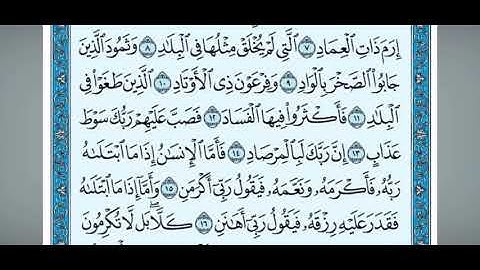 إِرَمَ ذَاتِ ٱلْعِمَادِ ٧ ٱلَّتِي لَمْ يُخْلَقْ مِثْلُهَا فِي ٱلْبِلَٰدِ ٨ وَثَمُودَ ٱلَّذِينَ
جَابُواْ ٱلصَّخْرَ بِٱلْوَادِ ٩ وَفِرْعَوْنَ ذِي ٱلْأَوْتَادِ ١٠ ٱلَّذِينَ طَغَوْاْ فِي
ٱلْبِلَٰدِ ١١ فَأَكْثَرُواْ فِيهَا ٱلْفَسَادَ ١٢ فَصَبَّ عَلَيْهِمْ رَبُّكَ سَوْطَ
عَذَابٍ ١٣ إِنَّ رَبَّكَ لَبِٱلْمِرْصَادِ ١٤ فَأَمَّا ٱلْإِنسَٰنُ إِذَا مَا ٱبْتَلَىٰهُ
رَبُّهُۥ فَأَكْرَمَهُۥ وَنَعَّمَهُۥ فَيَقُولُ رَبِّيٓ أَكْرَمَنِ ١٥ وَأَمَّآ إِذَا مَا ٱبْتَلَىٰهُ
فَقَدَرَ عَلَيْهِ رِزْقَهُۥ فَيَقُولُ رَبِّيٓ أَهَٰنَنِ ١٦ كَلَّا ۖ بَل لَّا تُكْرِمُونَ